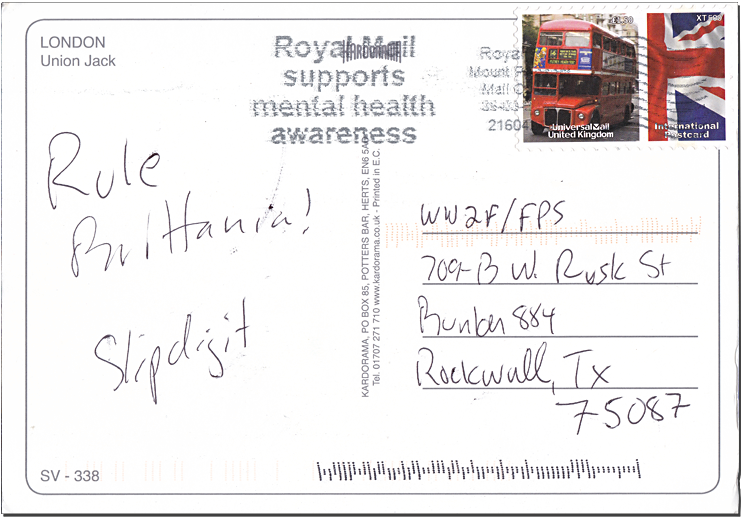 LONDON
Union Jack
Royal Mail
KARDORAMA
supports
mental health
awareness
Mount
Mail
21604
£1.50
XT
UniversalMail
United Kingdom
International
Postcard
Rule
Brittania!
Slipdigit
KARDORAMA, PO BOX 85, POTTERS BAR, HERTS, EN6 5A
Tel. 01707 271 710 www.kardorama.co.uk - Printed in E.C.
WW2F/FPS
709-B W. Rusk St
Bunker 884
Rockwall, Tx
75087
SV - 338